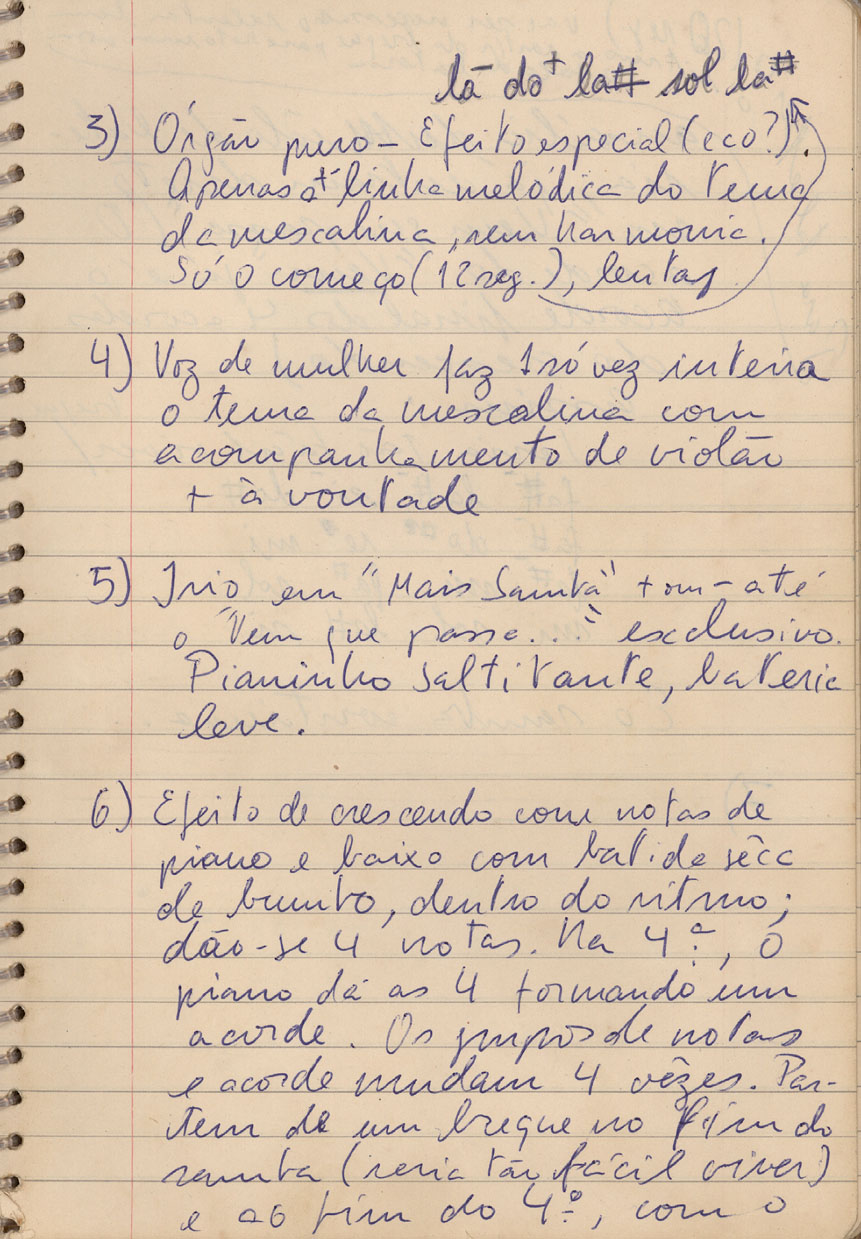 lá do+ la# sol la#
3) Órgão puro – Efeito especial (eco?).
Apenas a linha melódica do tema
da mescalina, sem harmonia.
Só o começo (12 seg.), lentas
4) Voz de mulher faz 1 só vez inteira
o tema da mescalina com
acompanhamento de violão
+ à vontade
5) Trio em "Mais Samba" + ou – até
o "Vem que passa..." exclusivo.
Pianinho saltitante, bateria
leve.
6) Efeito de crescendo com notas de
piano e baixo com batida sêca
de bumbo, dentro do ritmo;
dão-se 4 notas. Na 4ª, o
piano dá as 4 formando um
acorde. Os grupos de notas
e acorde mudam 4 vêzes. Par-
tem de um breque no fim do
samba (seria tão fácil viver)
e ao fim do 4º, com o